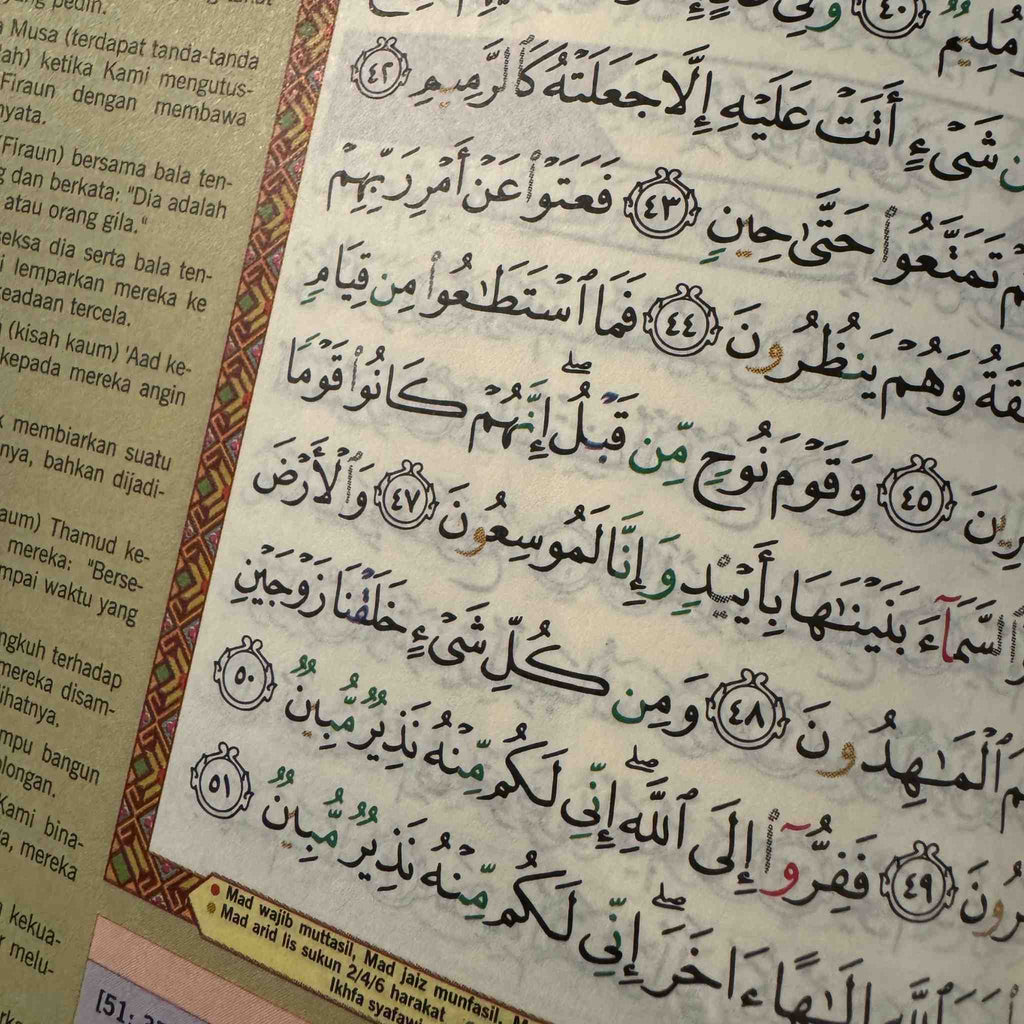 yang pedih.
Musa (terdapat tanda-tanda
ketika Kami mengutus-
Firaun dengan membawa
nyata.
(Firaun) bersama bala ten-
dan berkata: "Dia adalah
atau orang gila."
seksa dia serta bala ten-
lemparkan mereka ke
keadaan tercela.
(kisah kaum) 'Aad ke-
kepada mereka angin
membiarkan suatu
bahkan dijadi-
Thamud ke-
mereka: "Berse-
sampai waktu yang
terhadap
mereka disam-
mampu bangun
Kami bina-
mereka
kekua-
melu-
مُلِيمٌ ٤٠ وَفِى
شَىْءٍ أَتَتْ عَلَيْهِ إِلَّا جَعَلَتْهُ كَٱلرَّمِيمِ ٤٢
تَمَتَّعُوا۟ حَتَّىٰ حِينٍ ٤٣ فَعَتَوْا۟ عَنْ أَمْرِ رَبِّهِمْ
وَهُمْ يَنظُرُونَ ٤٤ فَمَا ٱسْتَطَٰعُوا۟ مِن قِيَامٍ
٤٥ وَقَوْمَ نُوحٍ مِّن قَبْلُ ۖ إِنَّهُمْ كَانُوا۟ قَوْمًا
ٱلسَّمَآءَ بَنَيْنَٰهَا بِأَيْي۟دٍ وَإِنَّا لَمُوسِعُونَ ٤٧ وَٱلْأَرْضَ
ٱلْمَٰهِدُونَ ٤٨ وَمِن كُلِّ شَىْءٍ خَلَقْنَا زَوْجَيْنِ
٤٩ فَفِرُّوٓا۟ إِلَى ٱللَّهِ ۖ إِنِّى لَكُم مِّنْهُ نَذِيرٌ مُّبِينٌ ٥٠
ٱللَّهِ إِلَٰهًا ءَاخَرَ ۖ إِنِّى لَكُم مِّنْهُ نَذِيرٌ مُّبِينٌ ٥١
Mad wajib muttasil, Mad jaiz munfasil,
Mad arid lis sukun 2/4/6 harakat
Ikhfa syafawi
[51: